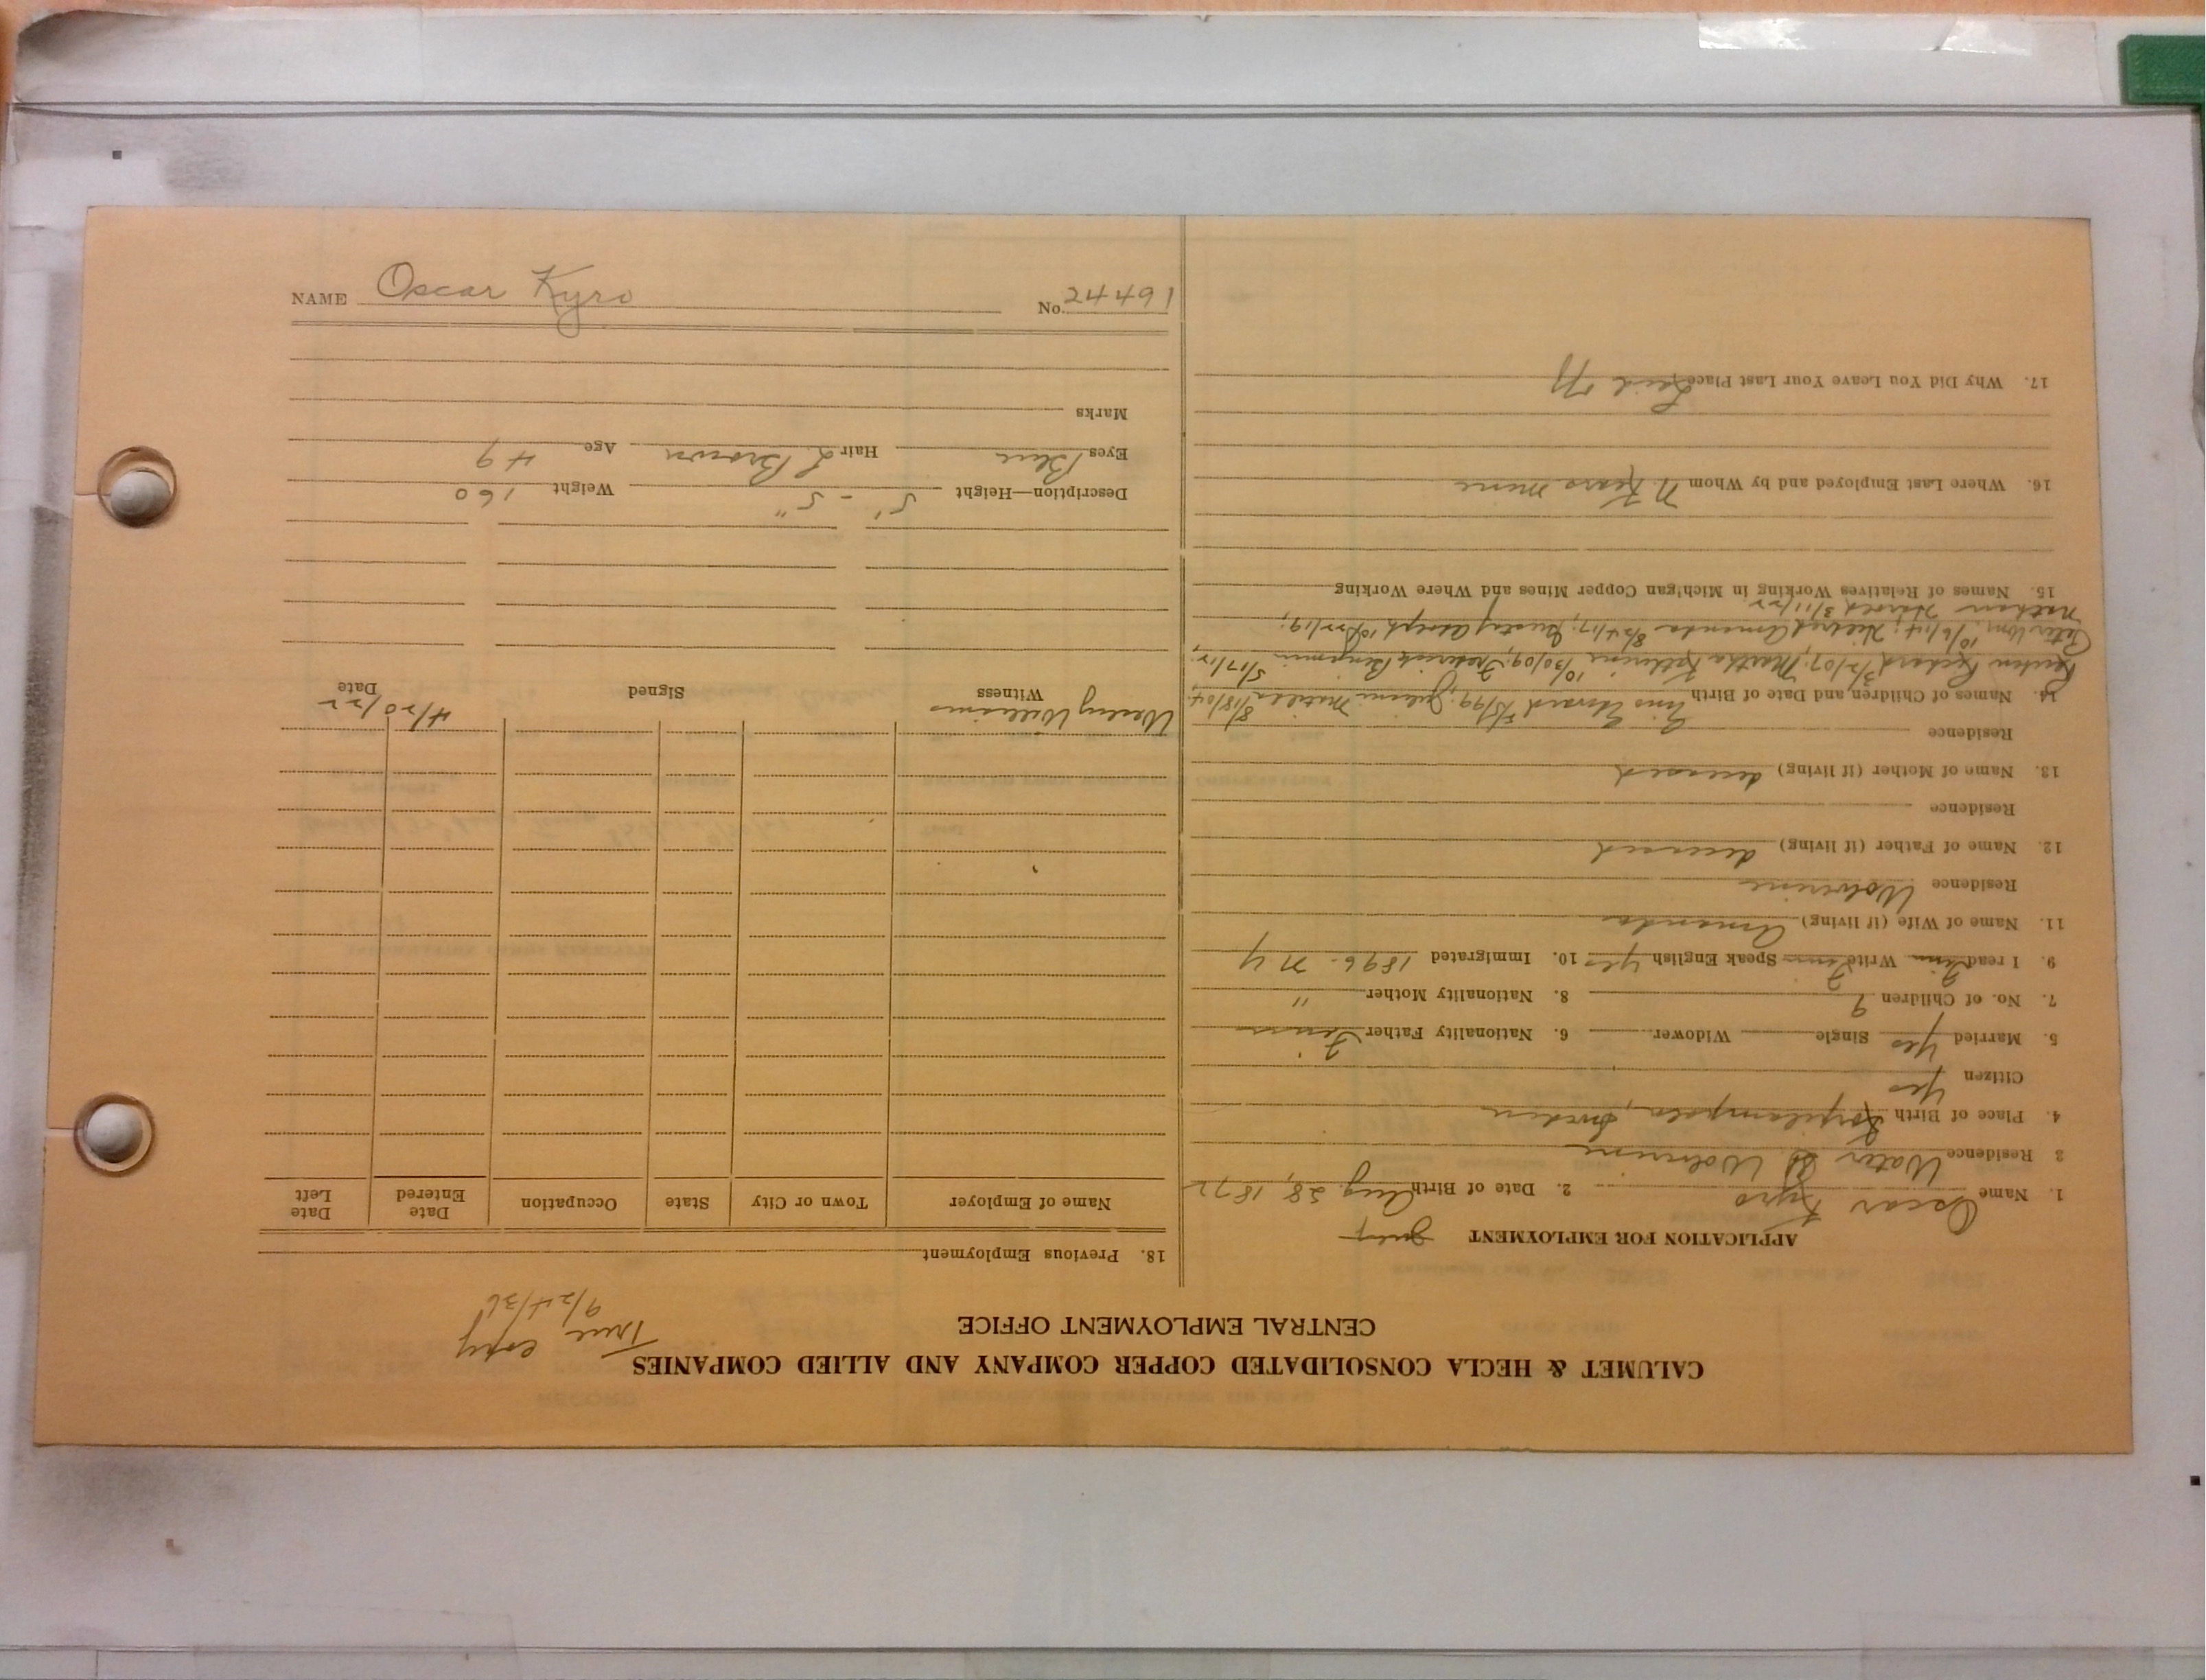 CALUMET & HECLA CONSOLIDATED COPPER COMPANY AND ALLIED COMPANIES
CENTRAL EMPLOYMENT OFFICE
True copy
9/24/36
APPLICATION FOR EMPLOYMENT
1. Name Oscar Kyro 2. Date of Birth Aug. 28, 1872
3 Residence Water St Wolverine
4. Place of Birth Korpilampola, Sweden
Citizen Yes
5. Married Yes Single Widower 6. Nationality Father Finn
7. No. of Children 9 8. Nationality Mother "
9. I read Finn Write Finn Speak English Yes 10. Immigrated 1896 - N Y
11. Name of Wife (if living) Amanda
Residence Wolverine
12. Name of Father (if living) deceased
Residence
13. Name of Mother (if living) deceased
Residence
14. Names of Children and Date of Birth Edward Matilda 8/18/04,
Reuben Richard 3/2/07; Martha Katherine 10/30/09; Frederick Benjamin 5/17/12;
Peter Wm. 10/6/14; Amanda 8/24/17; Gustaf 10/22/19;
Nathan Harold 3/11/22
15. Names of Relatives Working in Michigan Copper Mines and Where Working
16. Where Last Employed and by Whom N. Kears mine
17. Why Did You Leave Your Last Place Laid off
18. Previous Employment
Name of Employer Town or City State Occupation Date Entered Date Left
Wesley Williams 4/20/22
Witness Signed Date
Description—Height 5' - 5" Weight 160
Eyes Blue Hair L Brown Age 49
Marks
NAME Oscar Kyro No. 24491